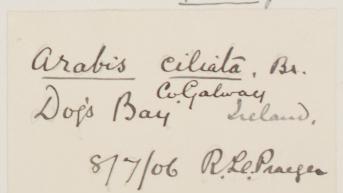 Arabis ciliata, Br.
Co. Galway
Dog's Bay Ireland.
8/7/06 R. Ll. Praeger